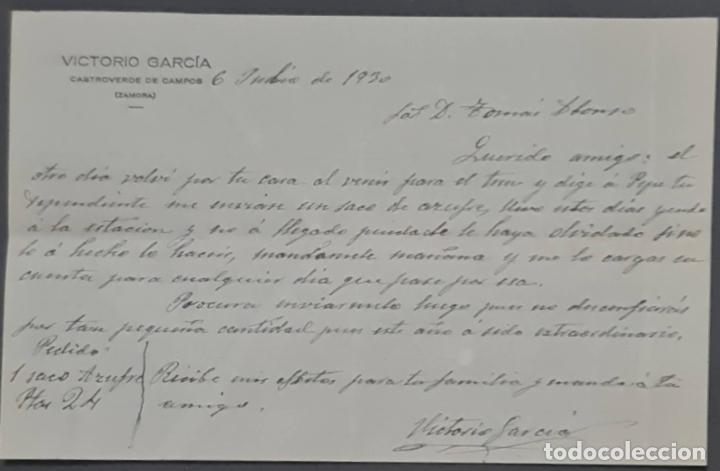 VICTORIO GARCÍA
CASTROVERDE DE CAMPOS 6 Julio de 1930
(ZAMORA)
D. Tomás Alonso
Querido amigo: el
otro dia volvi por tu casa al venir para el tren y dige á Pepe tu
dependiente me envian un saco de azufre, llevo estos dias yendo
á la estacion y no á llegado puede se le haya olvidado si no
lo á hecho lo hacer, mandamele mañana y me lo cargas en
cuenta para cualquier dia que pase por esa.
Procura enviarmelo luego pues no desconfiarás
por tan pequeña cantidad pues este año á sido extraordinario.
Pedido
1 saco Azufre
Ptas 24
Recibe mis afectos para tu familia y manda á tu
amigo.
Victorio García
todocoleccion.net